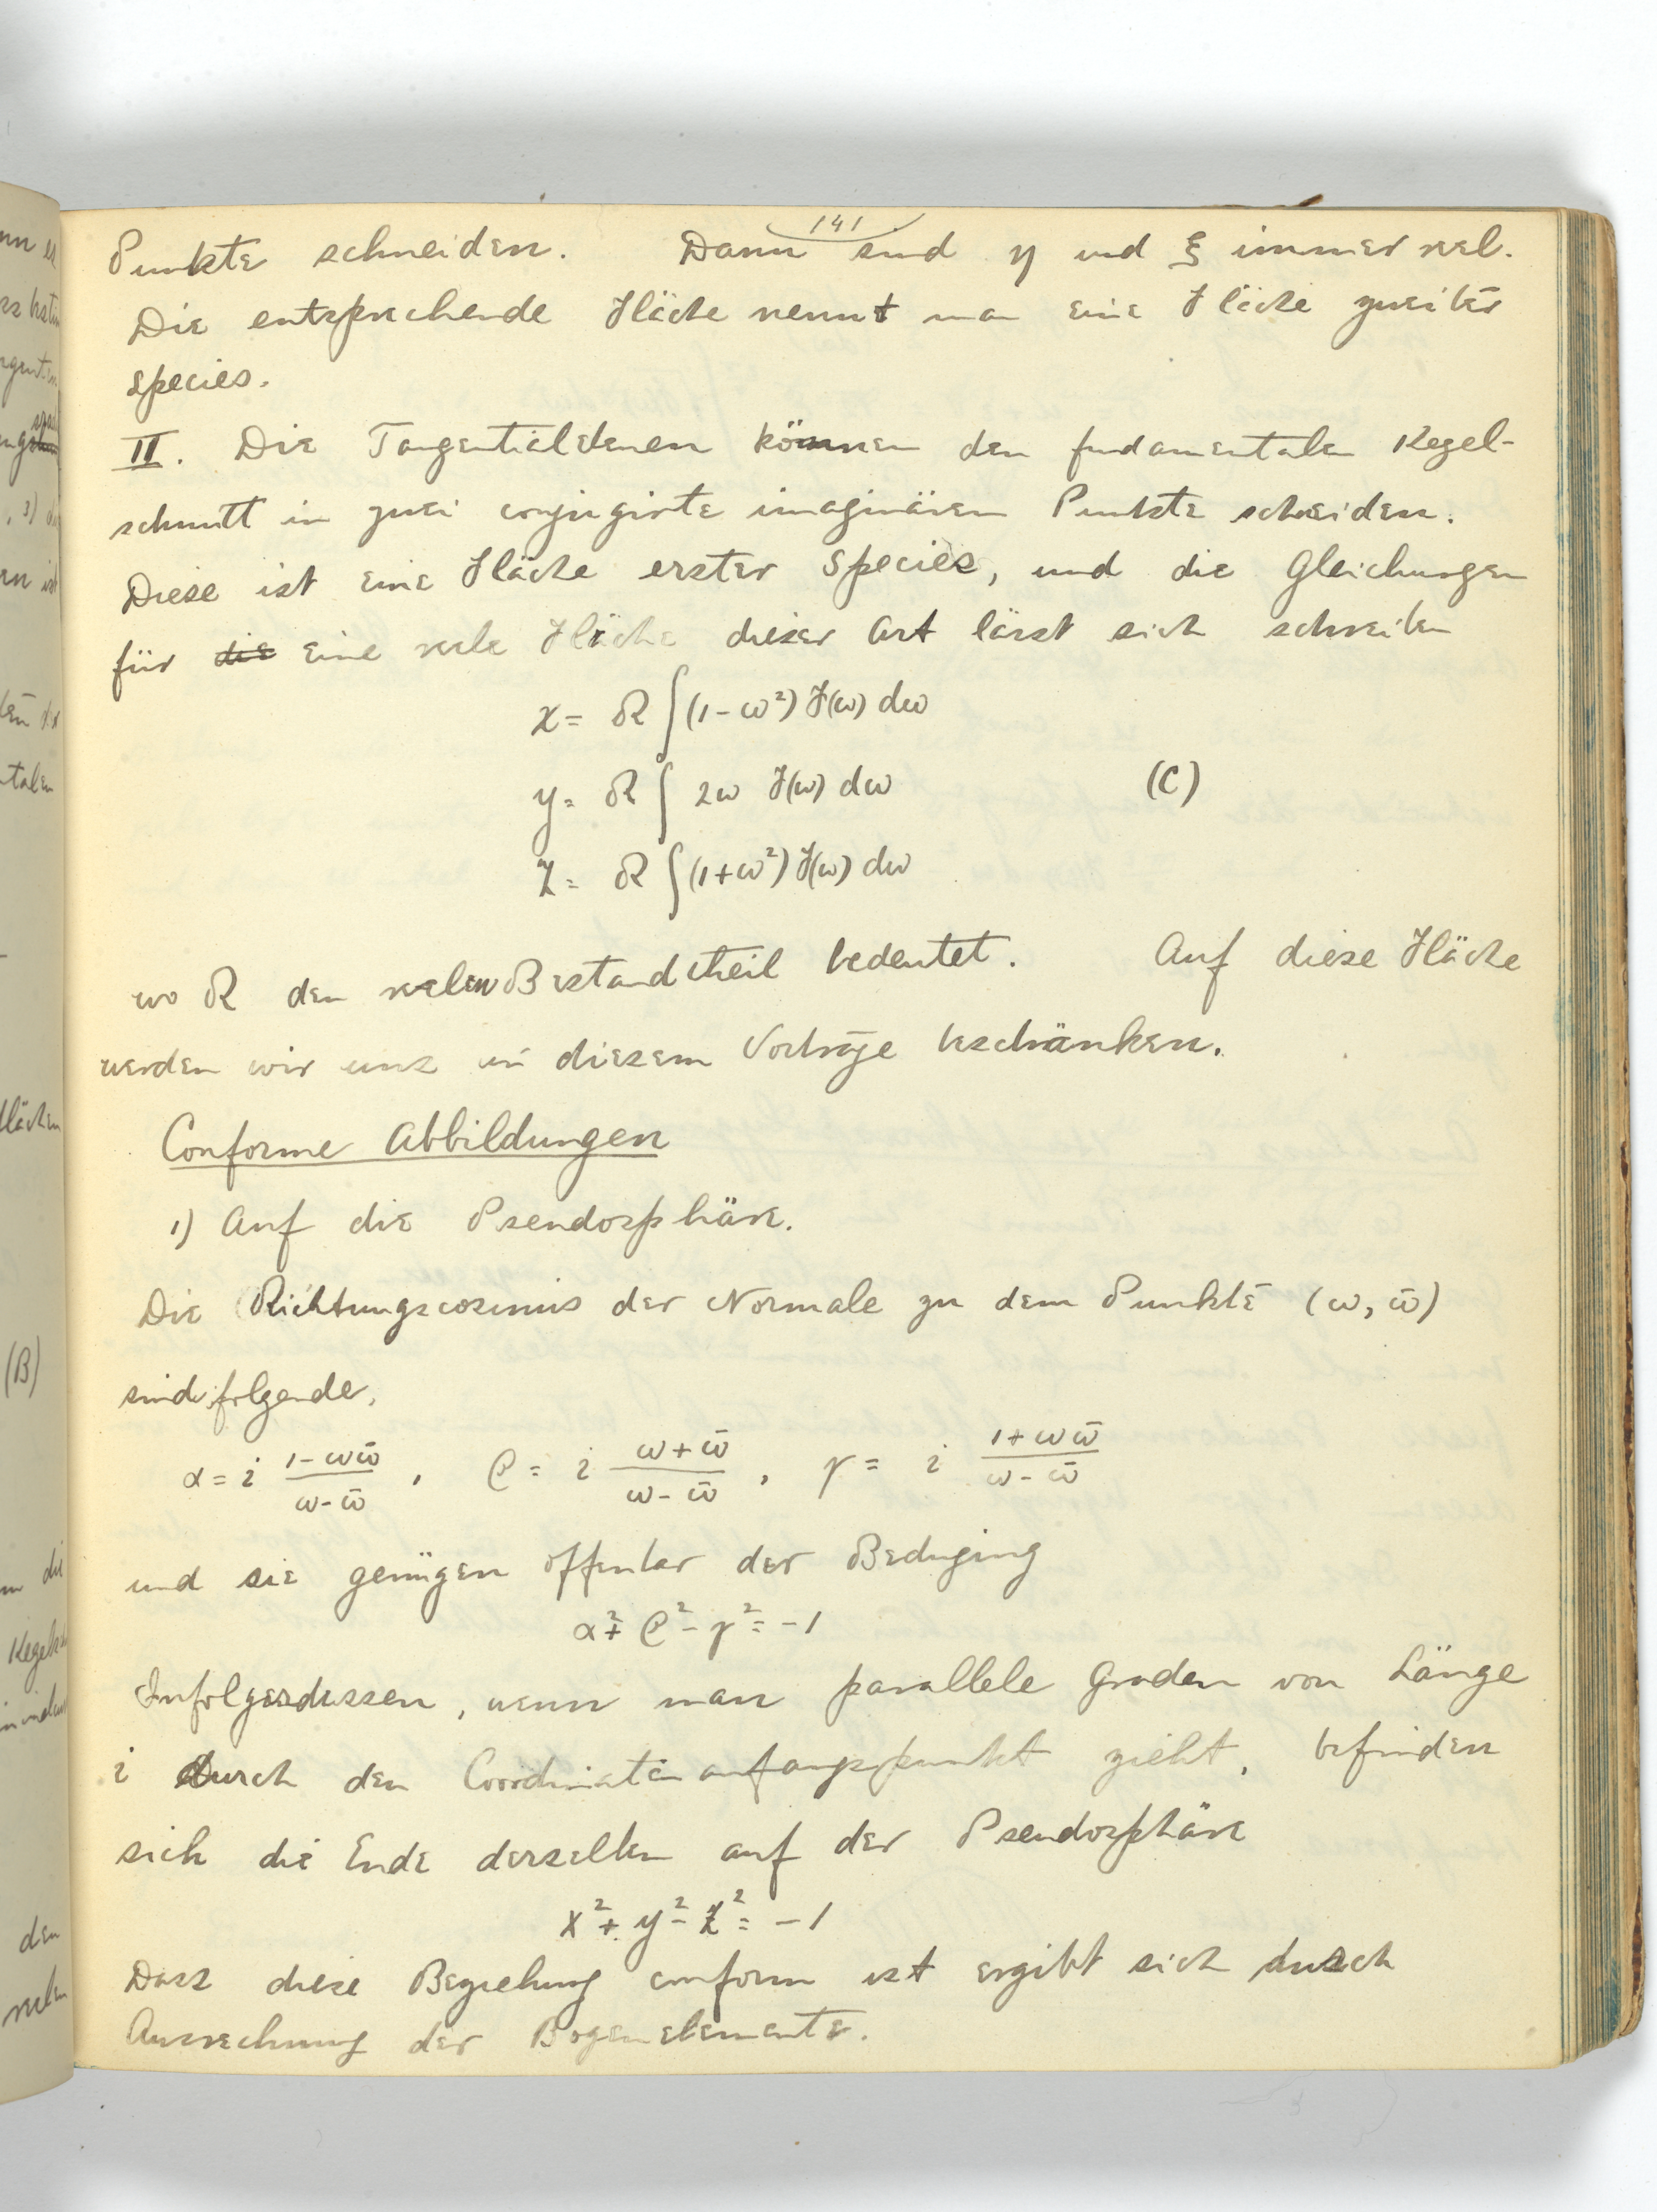 141
Punkte schneiden. Dann sind η und ξ immer reel.
Die entsprechende Fläche nennt man eine Fläche zweiter
Species.
II. Die Tangentialebenen können den fundamentalen Kegel-
schnitt in zwei conjugirte imaginären Punkte schneiden.
Diese ist eine Fläche erster Species, und die Gleichungen
für die eine reele Fläche dieser Art lässt sich schreiben
x = R ∫(1-ω²) F(ω) dω
y = R ∫ 2ω F(ω) dω (C)
z = R ∫(1+ω²) F(ω) dω
wo R den reelen Bestandtheil bedeutet. Auf diese Fläche
werden wir uns in diesem Vortrage beschränken.
Conforme Abbildungen
1) Auf die Pseudosphäre.
Die Richtungscosinus der Normale zu dem Punkte (ω, ω̄)
sind folgende,
α = i (1-ωω̄)/(ω-ω̄), β = i (ω+ω̄)/(ω-ω̄), γ = i (1+ωω̄)/(ω-ω̄)
und sie genügen offenbar der Bedingung
α² + β² - γ² = -1
Infolgesdessen, wenn man parallele Graden von Länge
i durch den Coordinatenanfangspunkt zieht, befinden
sich die Ende derselben auf der Pseudosphäre
x² + y² - z² = -1
Dass diese Beziehung conform ist ergibt sich durch
Ausrechnung der Bogenelemente.
(B)